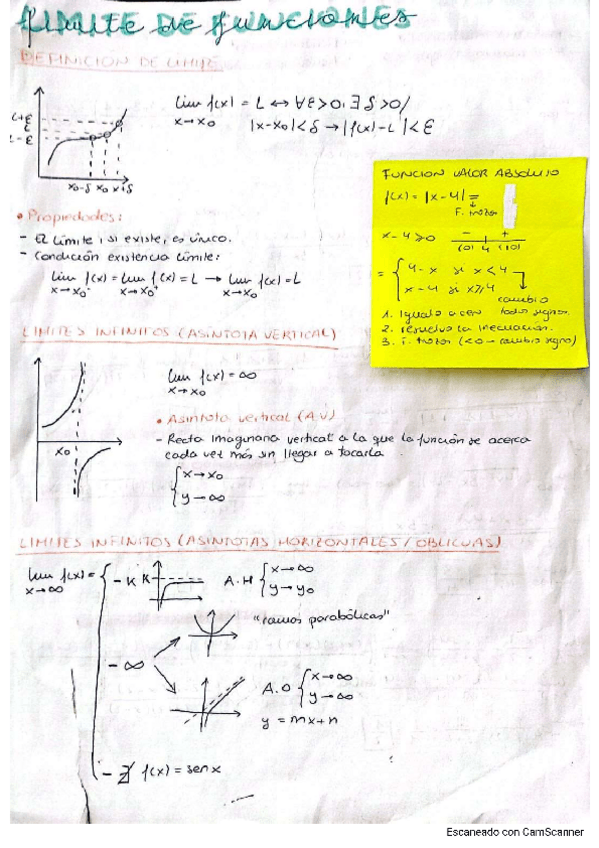 LIMITE DE FUNCIONES
DEFINICION DE LIMITE
lim f(x) = L ↔ ∀ε>0, ∃ δ>0/
x→x₀ |x-x₀|<δ → |f(x)-L|<ε
L+ε
L
L-ε
x₀-δ x₀ x+δ
• Propiedades:
- El límite, si existe, es único.
- Condición existencia límite:
lim f(x) = lim f(x) = L → lim f(x) = L
x→x₀⁻ x→x₀⁺ x→x₀
FUNCION VALOR ABSOLUTO
f(x) = |x-4| =
F. trozos
x-4≥0 - +
(0) 4 (10)
= { 4-x si x<4
x-4 si x≥4
cambio
todo signos.
1. Igualo a cero
2. resuelvo la inecuación.
3. F. trozos (<0→cambio signo)
LIMITES INFINITOS (ASINTOTA VERTICAL)
x₀
lim f(x) = ∞
x→x₀
• Asíntota vertical (A.V)
- Recta imaginaria vertical a la que la función se acerca
cada vez más sin llegar a tocarla.
{ x→x₀
y→∞
LIMITES INFINITOS (ASINTOTAS HORIZONTALES / OBLICUAS)
lim f(x) = {
x→∞
- K K A.H { x→∞
y→y₀
"ramas parabólicas"
- ∞
A.O { x→∞
y→∞
y = mx+n
- ∄ f(x) = sen x
Escaneado con CamScanner